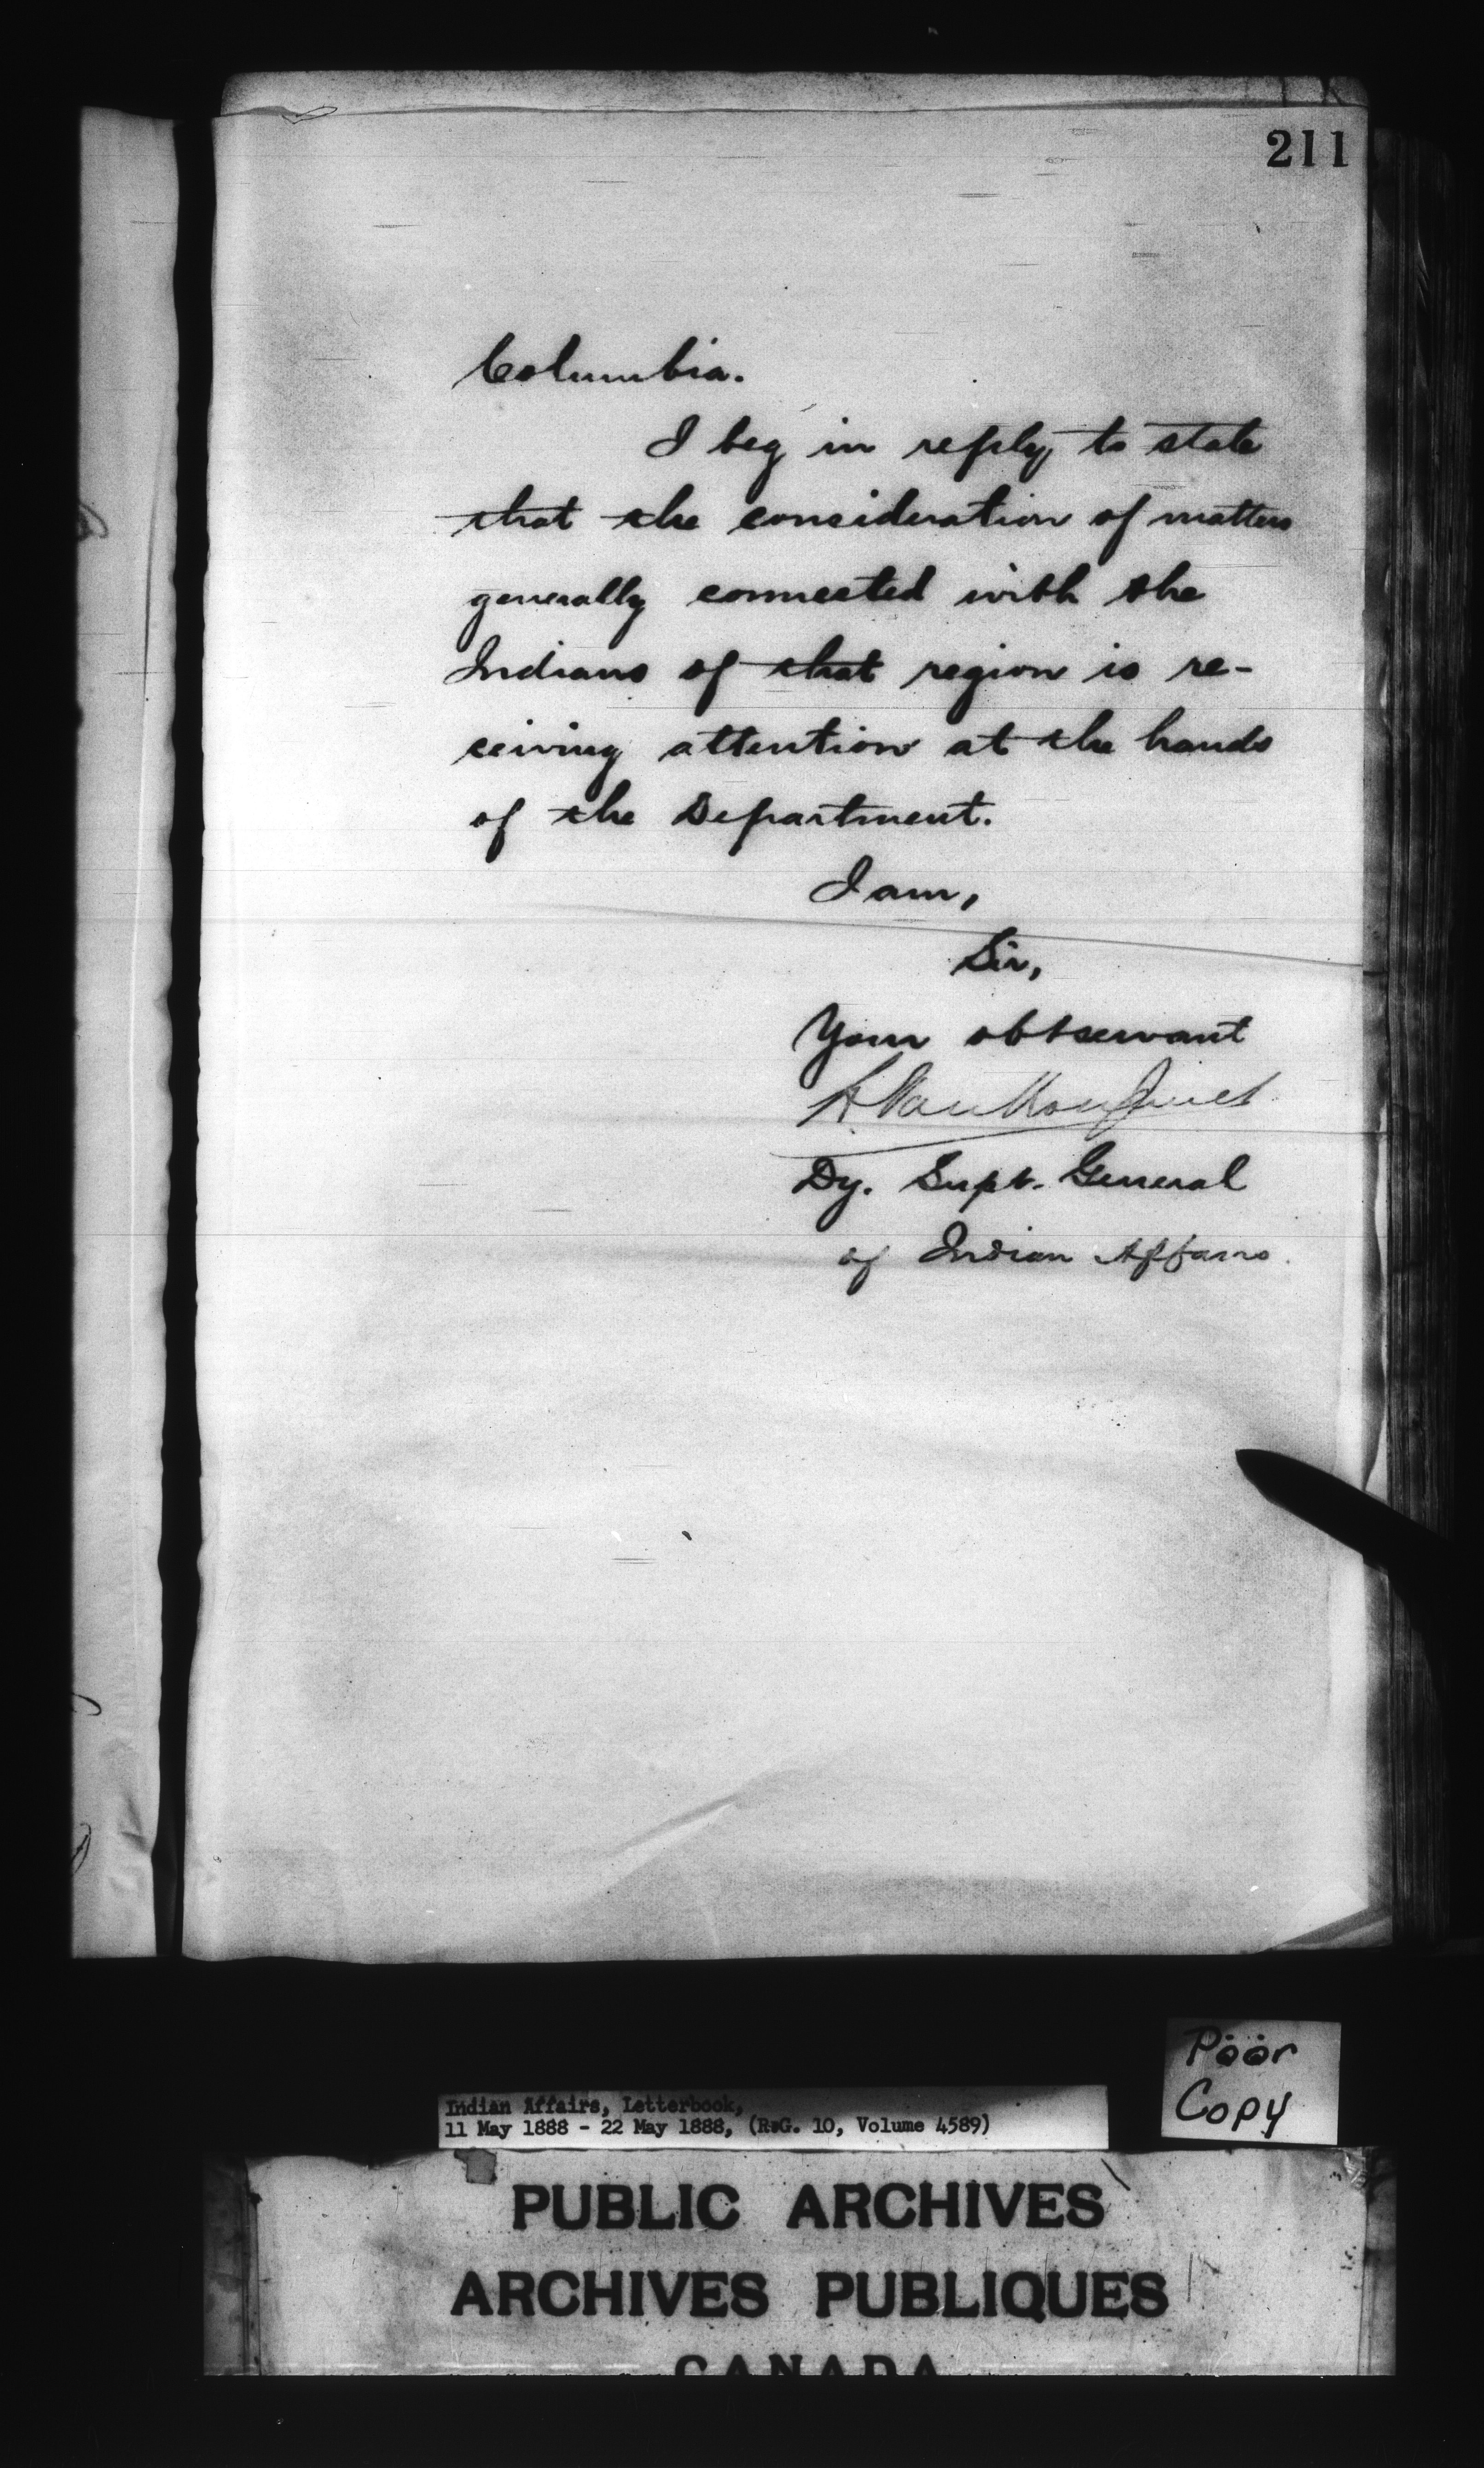 211
Columbia.
I beg in reply to state
that the consideration of matters
generally connected with the
Indians of that region is re-
ceiving attention at the hands
of the Department.
I am,
Sir,
Your obt servant
L. VanKoughnet
Dy. Supt. General
of Indian Affairs.
Poor
Copy
Indian Affairs, Letterbook,
11 May 1888 - 22 May 1888, (R.G. 10, Volume 4589)
PUBLIC ARCHIVES
ARCHIVES PUBLIQUES
CANADA